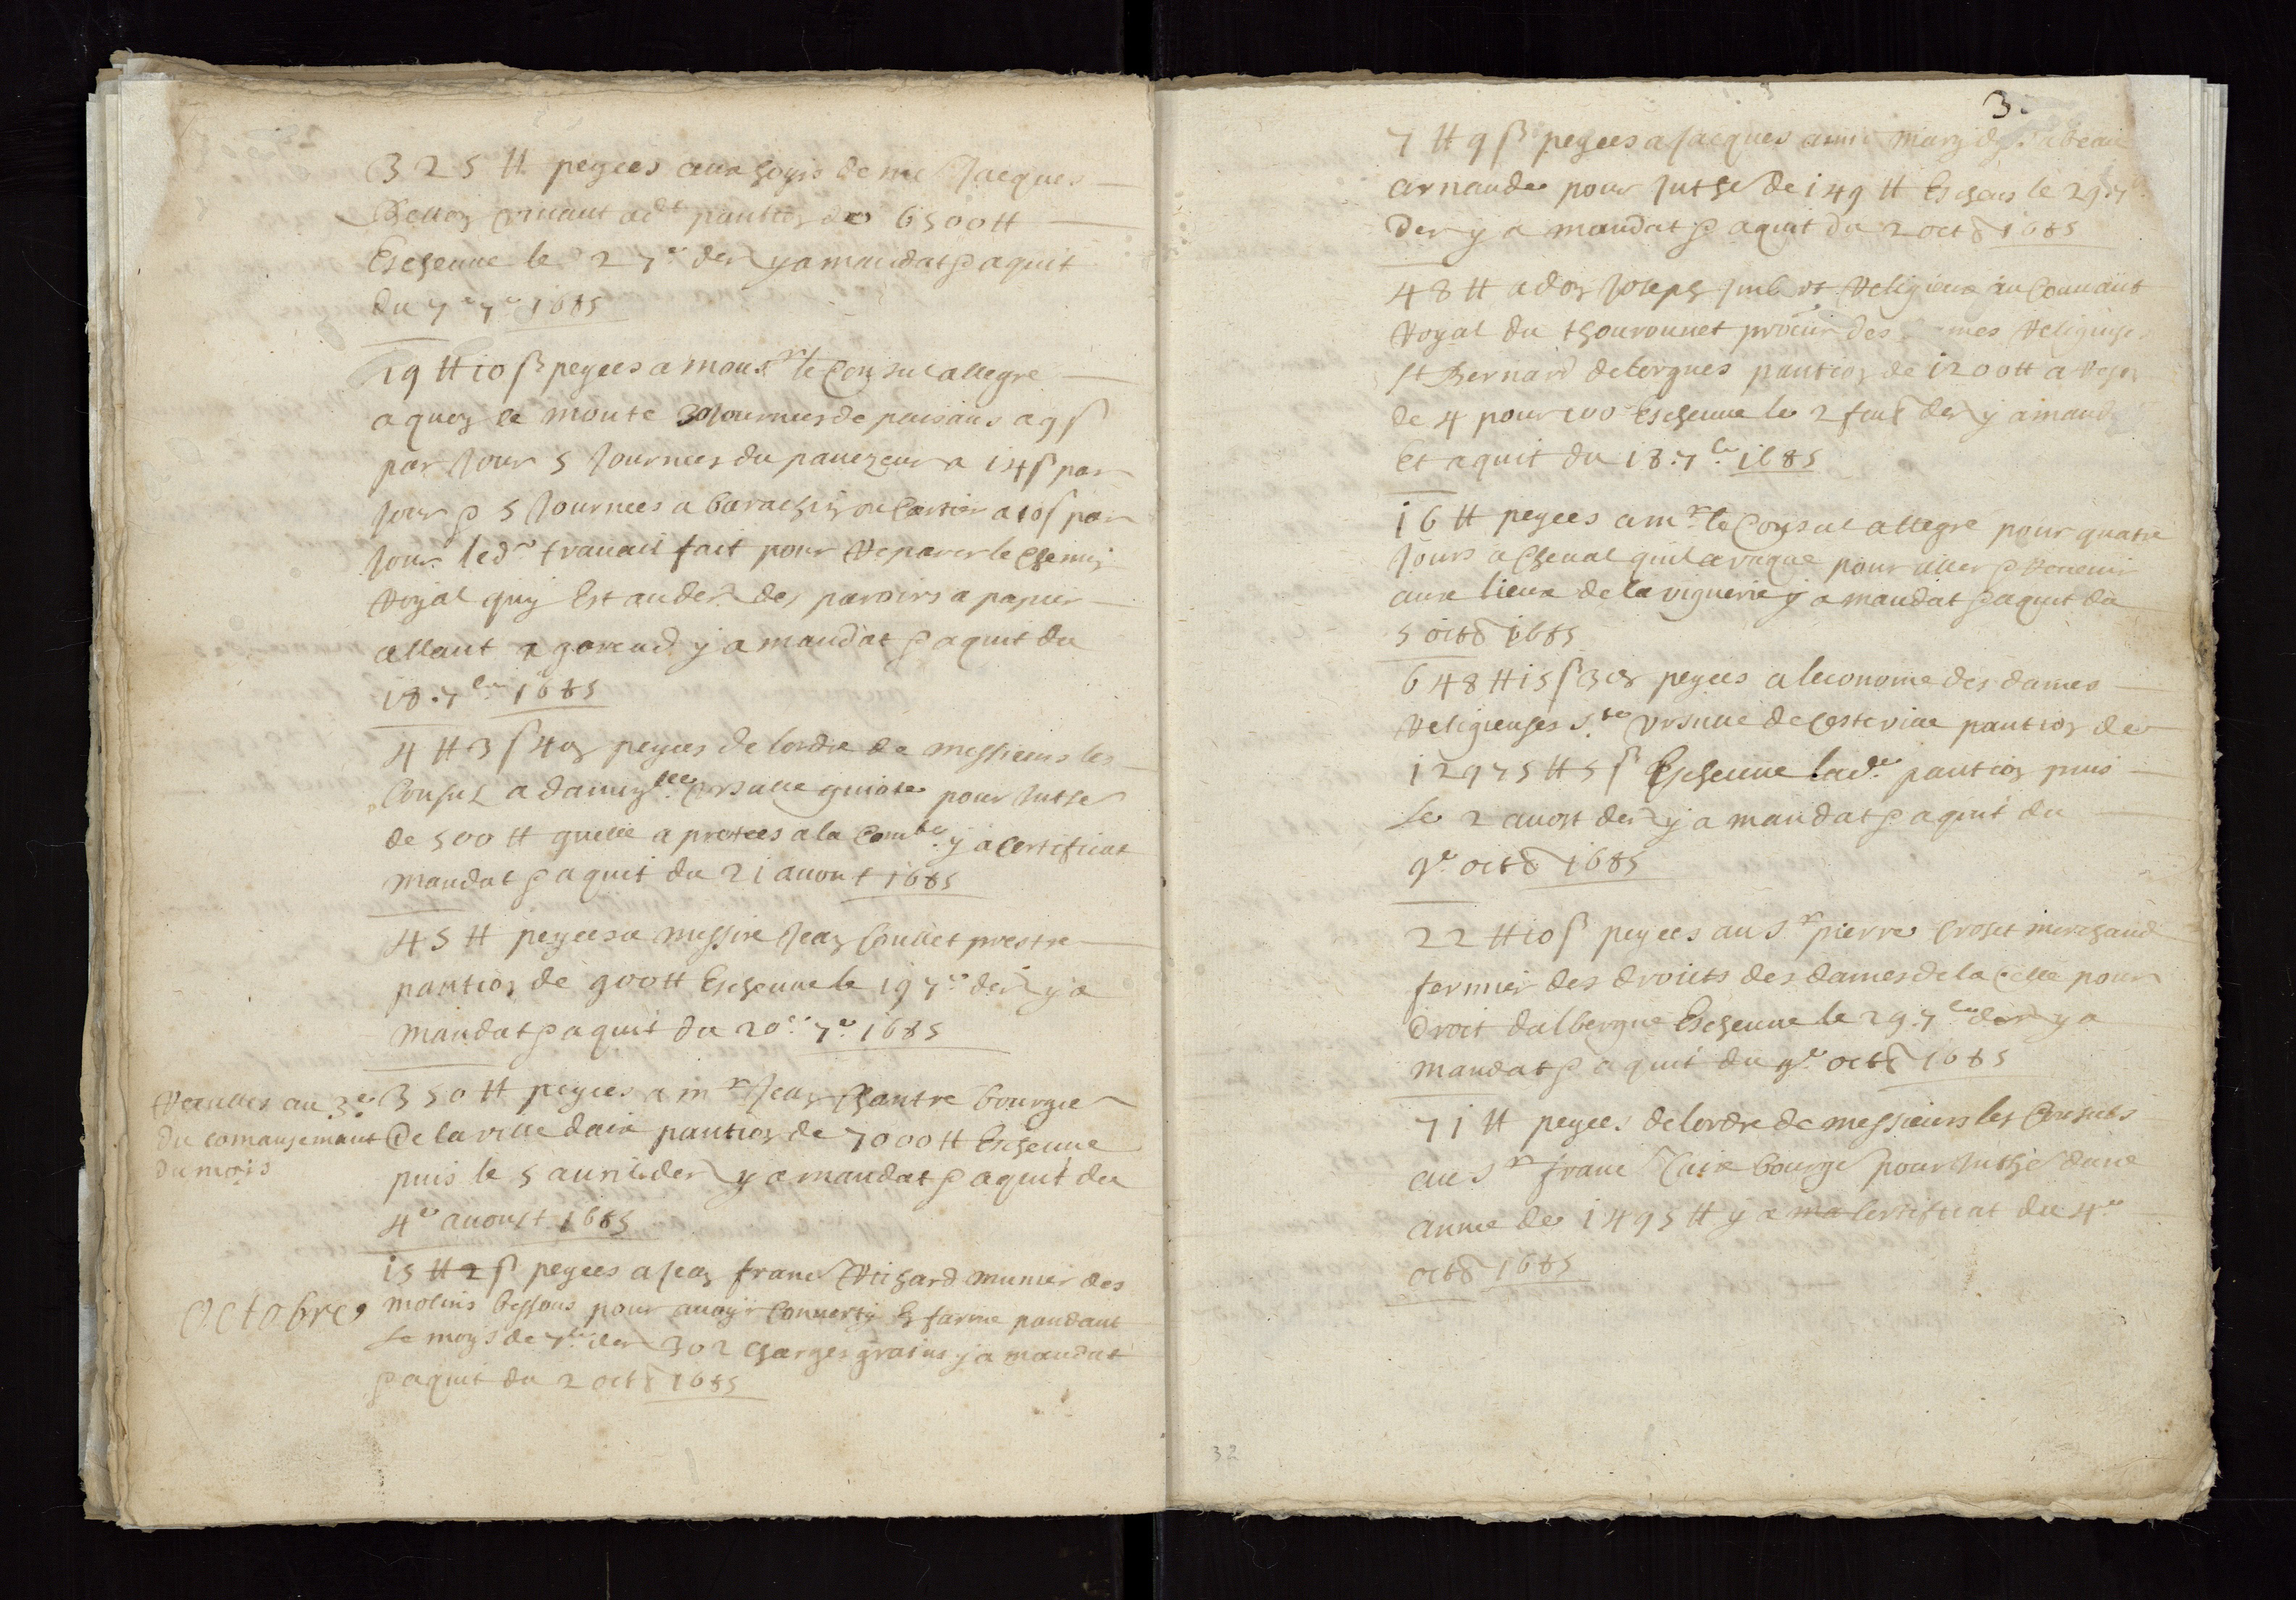 325 ₶ peyees aux hoyrs de me Jacques
Bellon viuant adt pantion de 6500 ₶
Escheue le 27e der y a mandat & aquit
du 7e 7e 1685
19 ₶ 10 ß peyees a monsr le Consul allegre
a quoy se monte 30 Journees de paisans a 9 ß
par Jour 5 Journees du a 14 ß par
Jour & 5 Journees a a 10 ß par
Jour led travail fait pour Reparer le Chemin
Royal quy Est au der des paroirs a papier
allant a y a mandat & aquit du
18. 7bre 1685
4 ₶ 3 ß 4 peyees de lordre de messieurs les
Consul a damlle ursulle pour Inthe
de 500 ₶ quelle a prestees a la Comte y a Certificat
mandat & aquit du 21 auoust 1685
45 ₶ peyees a messire Jean Coullet prestre
pantion de 900 ₶ Escheue le 19 7e der y a
mandat & aquit du 20e 7e 1685
Reculles au 3e
du comansemant
du mois
350 ₶ peyees a mr Jean Chantre bourge
de la ville daix pantion de 7000 ₶ Escheue
puis le 5 auril der y a mandat & aquit du
4e auoust 1685
Octobre
15 ₶ 2 ß peyees a Jean Richard munier des
molins bessons pour auoyr Conuerty En farine pandant
Le moys de 7bre der 302 charges grains y a mandat
& aquit du 2 oct 1685
3.
7 ₶ 9 ß peyees a Jacques mary
arnaude pour Inthe de 149 ₶ Escheus le 29. 7
der y a mandat & aquit du 2 oct 1685
48 ₶ a don Joseph Imbert Religieux au Couuant
Royal du thouronnet procur des dames Religieuses
St Bernard de lorgues pantion de 1200 ₶ a Reson
de 4 pour 100 Escheue le 2 der y a mand
Et aquit du 18. 7bre 1685
16 ₶ peyees a mr le Consul allegre pour quatre
Jours a Cheual quil a vaque pour aller & Reuenir
aux lieux de la viguerie y a mandat & aquit du
5 oct 1685
648 ₶ 15 ß 3 peyees a leconome des dames
Religieuses Ste Ursulle de Ceste ville pantion de
12975 ₶ 5 ß Escheue lade pantion puis
Le 2 auost der y a mandat & aquit du
9e oct 1685
22 ₶ 10 ß peyees au Sr pierre Croset merchand
fermier des droits des dames de la Celle pour
Droit dalbergue Escheue le 29. 7bre der y a
mandat & aquit du 9e oct 1685
71 ₶ peyees de lordre de messieurs les Consuls
au Sr franc bourge pour Inthe dune
annee de 1495 ₶ y a Certificat du 4e
oct 1685
32